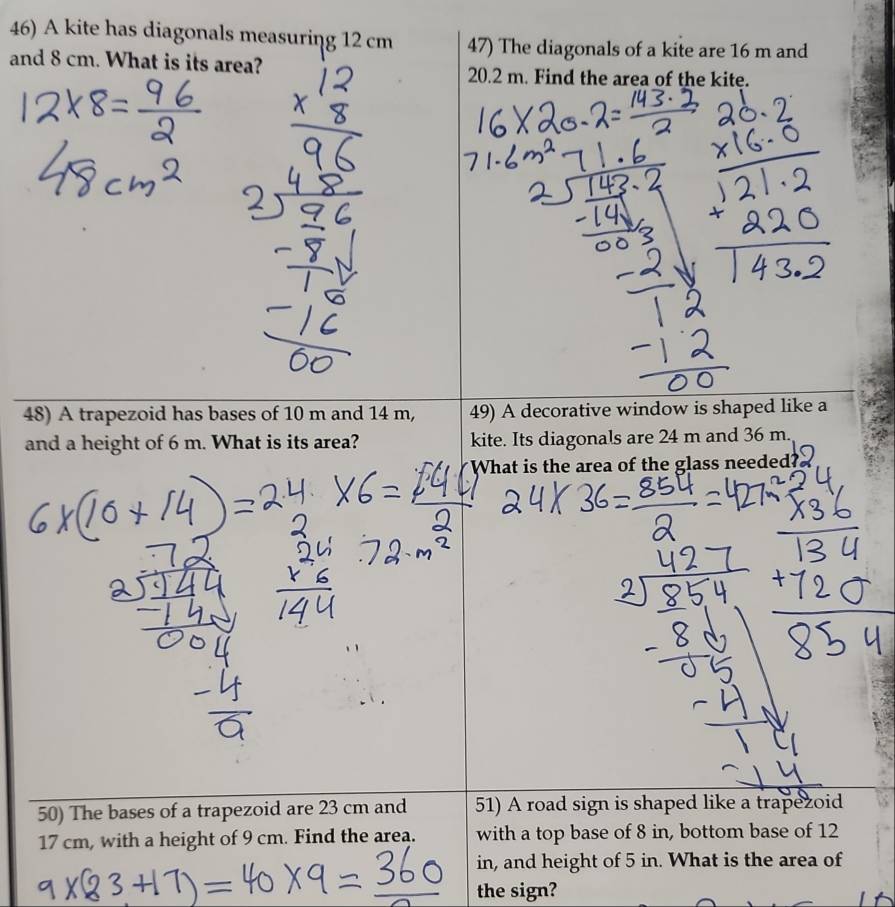 46) A kite has diagonals measuring 12 cm
and 8 cm. What is its area?
12 × 8 = 96
2
48 cm²
12
× 8
96
48
2 96
- 8
1 6
- 16
00
47) The diagonals of a kite are 16 m and
20.2 m. Find the area of the kite.
16 × 20.2 = 143.2
2
71.6 m²
20.2
×16.0
121.2
+ 220
143.2
71.6
2 143.2
-14
003
-2
12
-12
00
48) A trapezoid has bases of 10 m and 14 m,
and a height of 6 m. What is its area?
6×(10 + 14) = 24 × 6 = 144
2
72 m²
2
24
× 6
144
72
2 144
-14
004
-4
0
49) A decorative window is shaped like a
kite. Its diagonals are 24 m and 36 m.
What is the area of the glass needed?
24 × 36 = 854 = 427 m²
2
2
24
×36
134
+720
854
427
2 854
- 8
05
-4
14
-14
00
50) The bases of a trapezoid are 23 cm and
17 cm, with a height of 9 cm. Find the area.
9×(23+17) = 40 × 9 = 360
51) A road sign is shaped like a trapezoid
with a top base of 8 in, bottom base of 12
in, and height of 5 in. What is the area of
the sign?